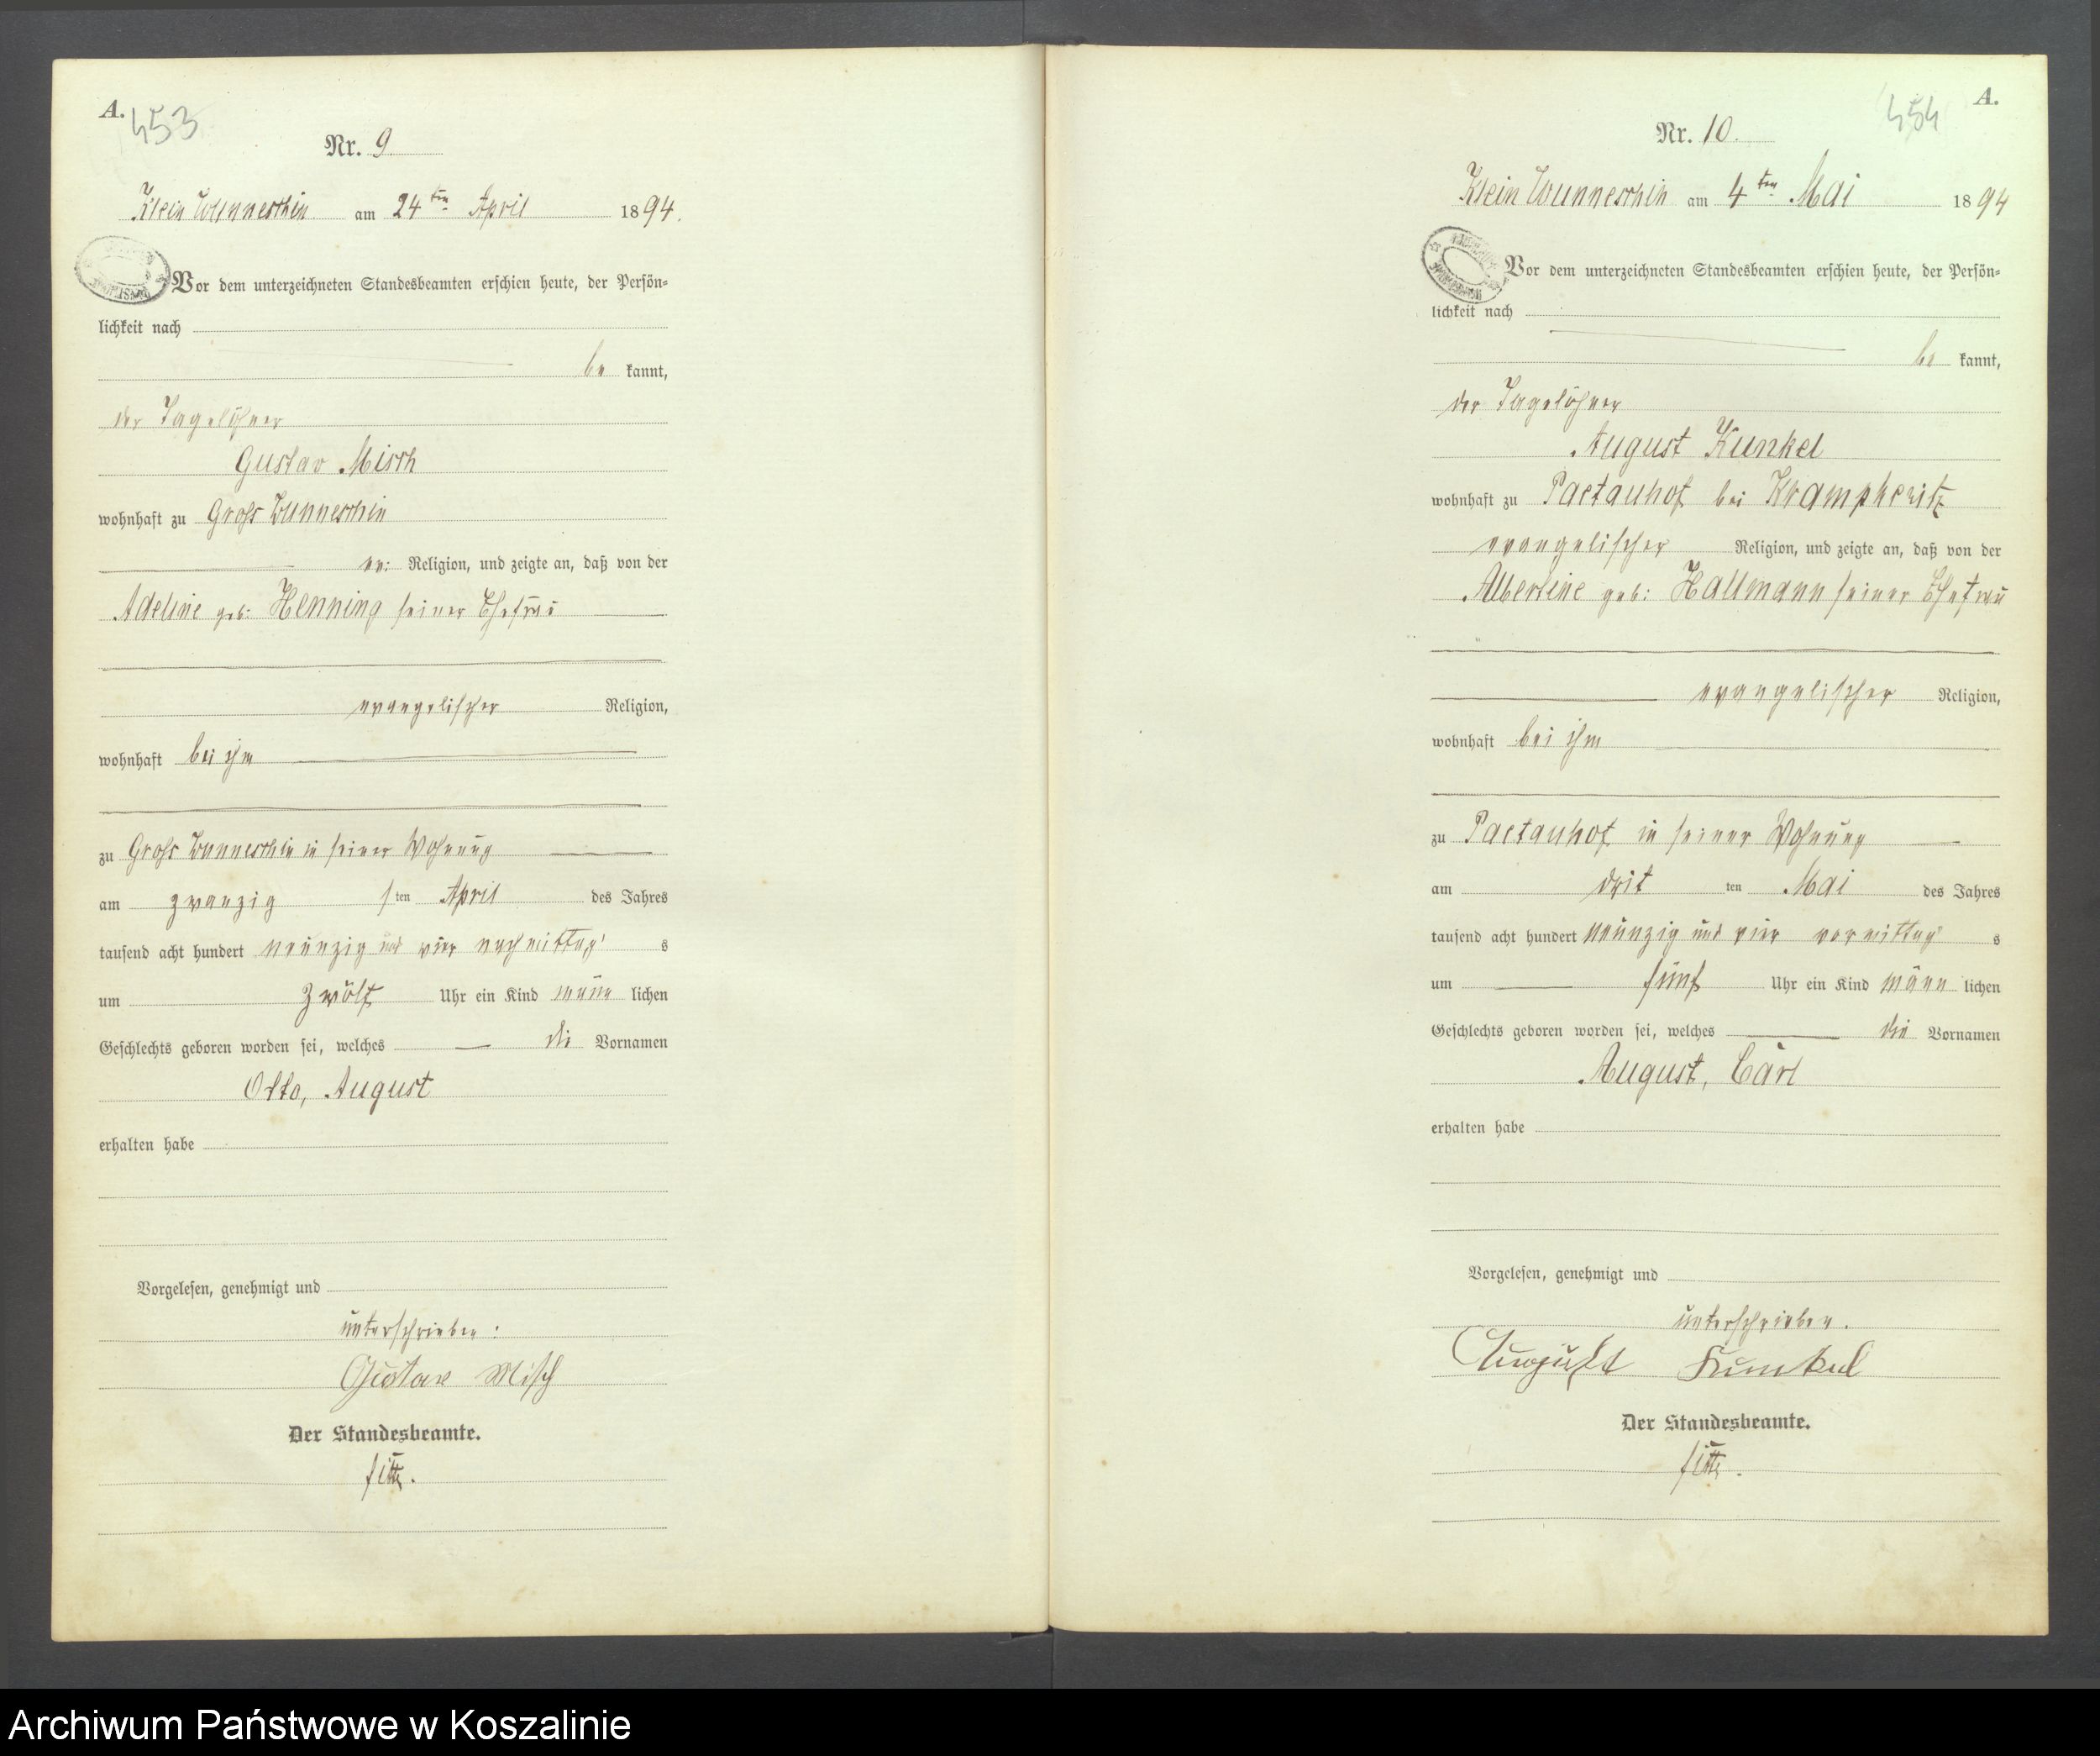 A.
453
Nr. 9
Klein Wunneschin am 24ten April 1894.
Vor dem unterzeichneten Standesbeamten erschien heute, der Persön-
lichkeit nach
be kannt,
der Tagelöhner
Gustav Misch
wohnhaft zu Gross Wunneschin
ev: Religion, und zeigte an, daß von der
Adeline geb: Henning seiner Ehefrau
evangelischer Religion,
wohnhaft bei ihm
zu Gross Wunneschin in seiner Wohnung
am zwanzig sten April des Jahres
tausend acht hundert neunzig und vier nachmittag s
um zwölf Uhr ein Kind männ lichen
Geschlechts geboren worden sei, welches die Vornamen
Otto, August
erhalten habe
Vorgelesen, genehmigt und
unterschrieben:
Gustav Misch
Der Standesbeamte.
A.
454
Nr. 10.
Klein Wunneschin am 4ten Mai 1894
Vor dem unterzeichneten Standesbeamten erschien heute, der Persön-
lichkeit nach
be kannt,
der Tagelöhner
August Kunkel
wohnhaft zu Paetauhof bei Krampkewitz
evangelischer Religion, und zeigte an, daß von der
Albertine geb: Hallmann seiner Ehefrau
evangelischer Religion,
wohnhaft bei ihm
zu Paetauhof in seiner Wohnung
am drit ten Mai des Jahres
tausend acht hundert neunzig und vier vormittag s
um fünf Uhr ein Kind männ lichen
Geschlechts geboren worden sei, welches die Vornamen
August, Carl
erhalten habe
Vorgelesen, genehmigt und
unterschrieben.
August Kunkel
Der Standesbeamte.
Archiwum Państwowe w Koszalinie